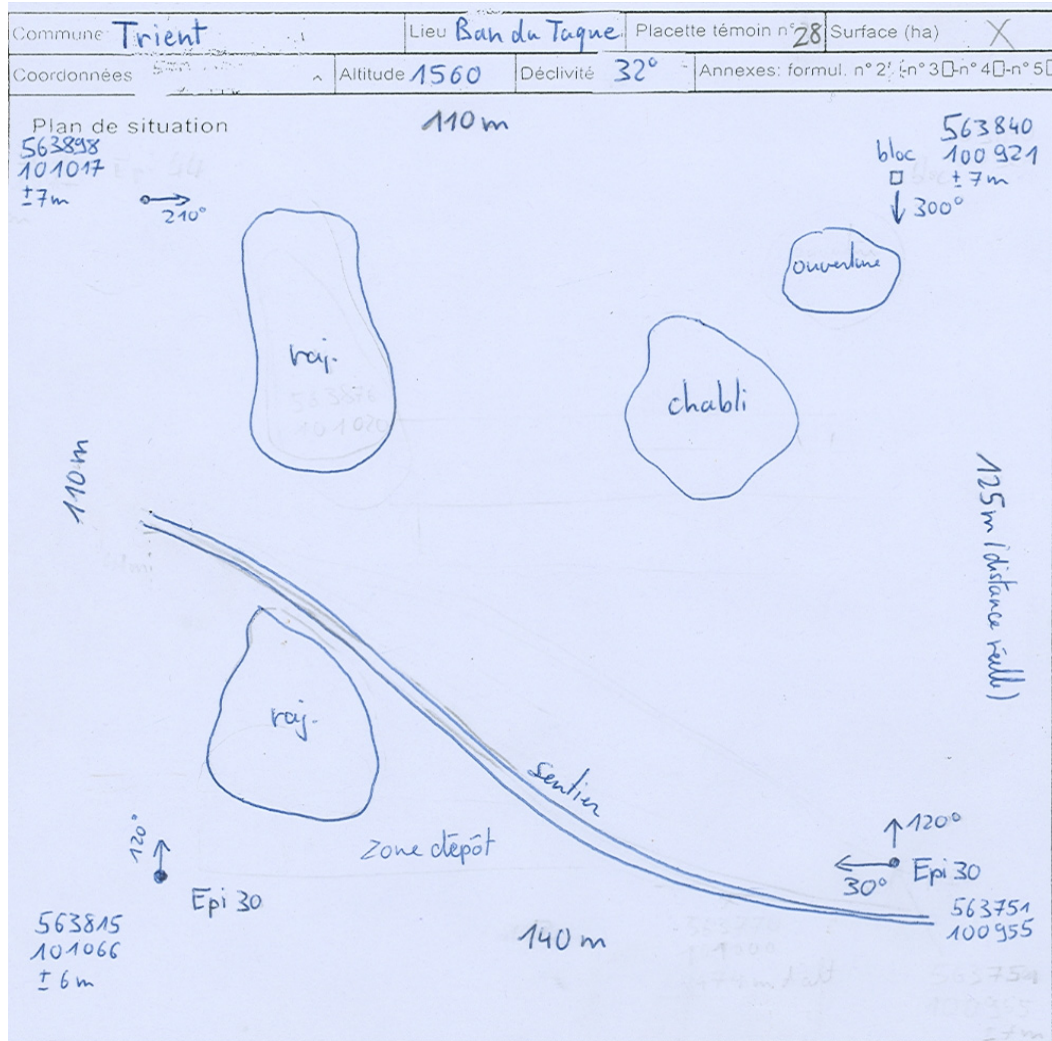 Commune Trient Lieu Ban du Taque Placette témoin n° 28 Surface (ha) X
Coordonnées Altitude 1560 Déclivité 32° Annexes: formul. n° 2 -n° 3 -n° 4 -n° 5
Plan de situation
110 m
563898
101017
± 7m
210°
563840
bloc 100 921
± 7m
300°
ouverture
raj.
chabli
110 m
125 m (distance réelle)
raj.
sentier
Zone dépôt
120°
Epi 30
120°
30° Epi 30
563815
101066
± 6m
140 m
563751
100955